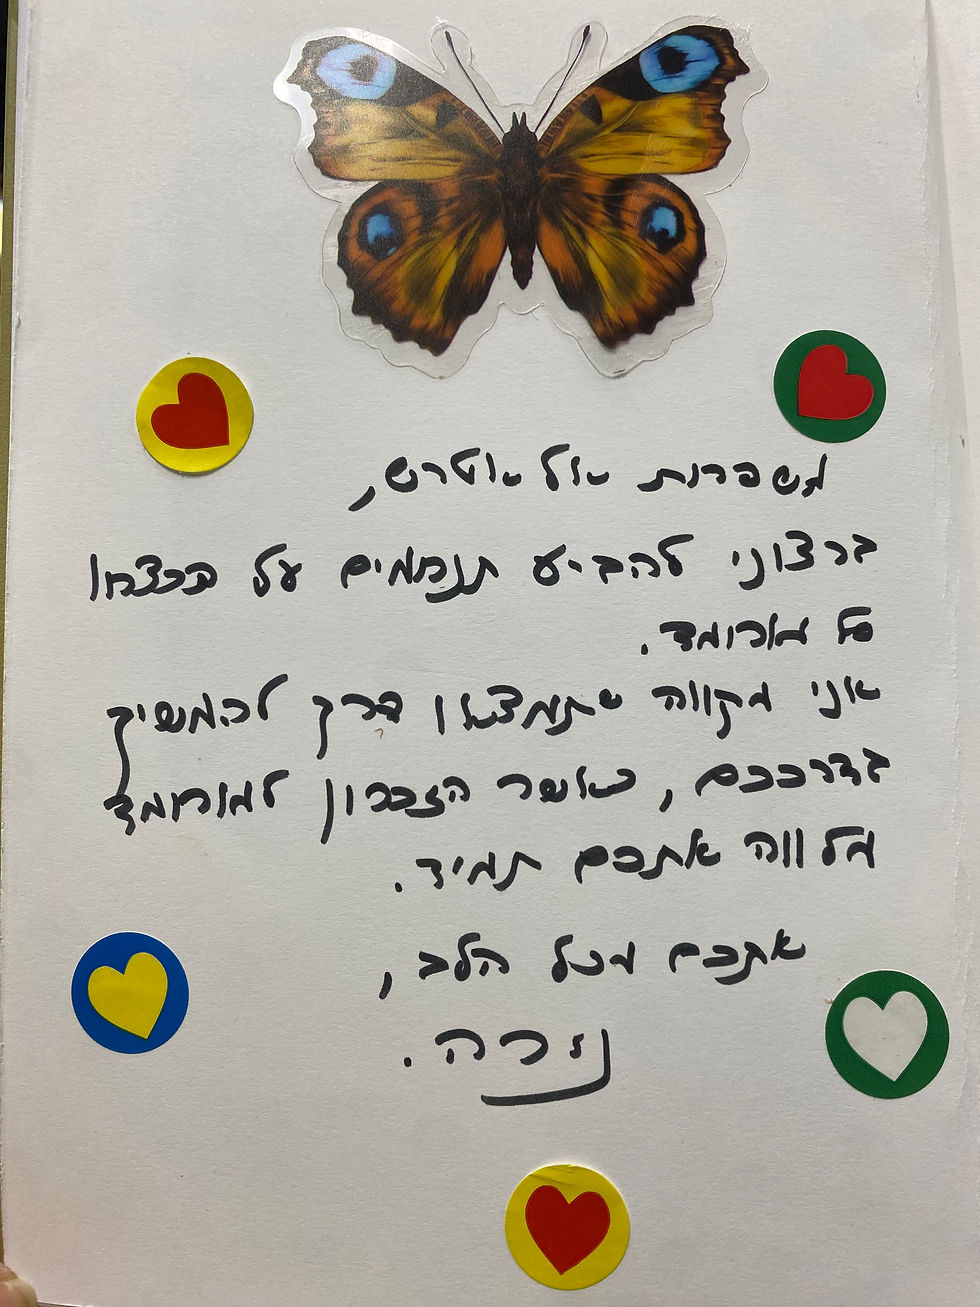 משפחת אל אטרש,
ברצוני להביע תנחמים על הרצחו
של מוחמד.
אני מקווה שתמצאו דרך להמשיך
בדרככם, כאשר הזכרון למוחמד
מלווה אתכם תמיד.
אתכם מכל הלב,
נירה.